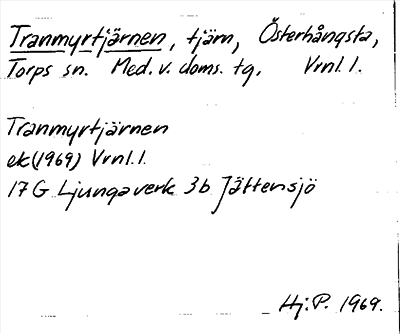 Tranmyrtjärnen, tjärn, Österhångsta,
Torps sn. Med. v. doms. tg. Vrnl. 1.
Tranmyrtjärnen
ek(1969) Vrnl. 1.
17 G Ljungaverk 3b Jättensjö
Hj. P. 1969.